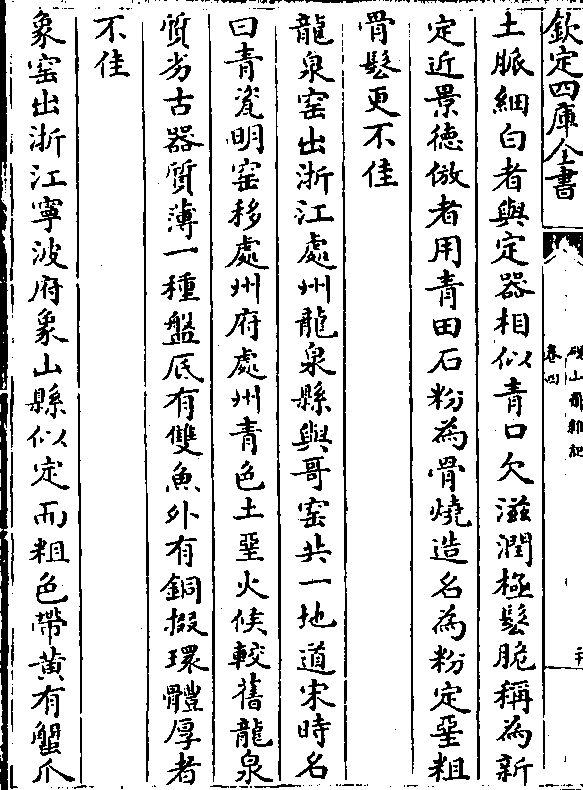 欽定四庫全書
硯山齋雜記
卷四
土脈細白者與定器相似青口欠滋潤極鬆脆稱為新
定近景德倣者用青田石粉為骨燒造名為粉定堊粗
骨鬆更不佳
龍泉窑出浙江處州龍泉縣與哥窑共一地道宋時名
曰青瓷明窑移處州府處州青色土堊火候較舊龍泉
質劣古器質薄一種盤底有雙魚外有銅掇環體厚者
不佳
象窑出浙江寧波府象山縣似定而粗色帶黃有蟹爪